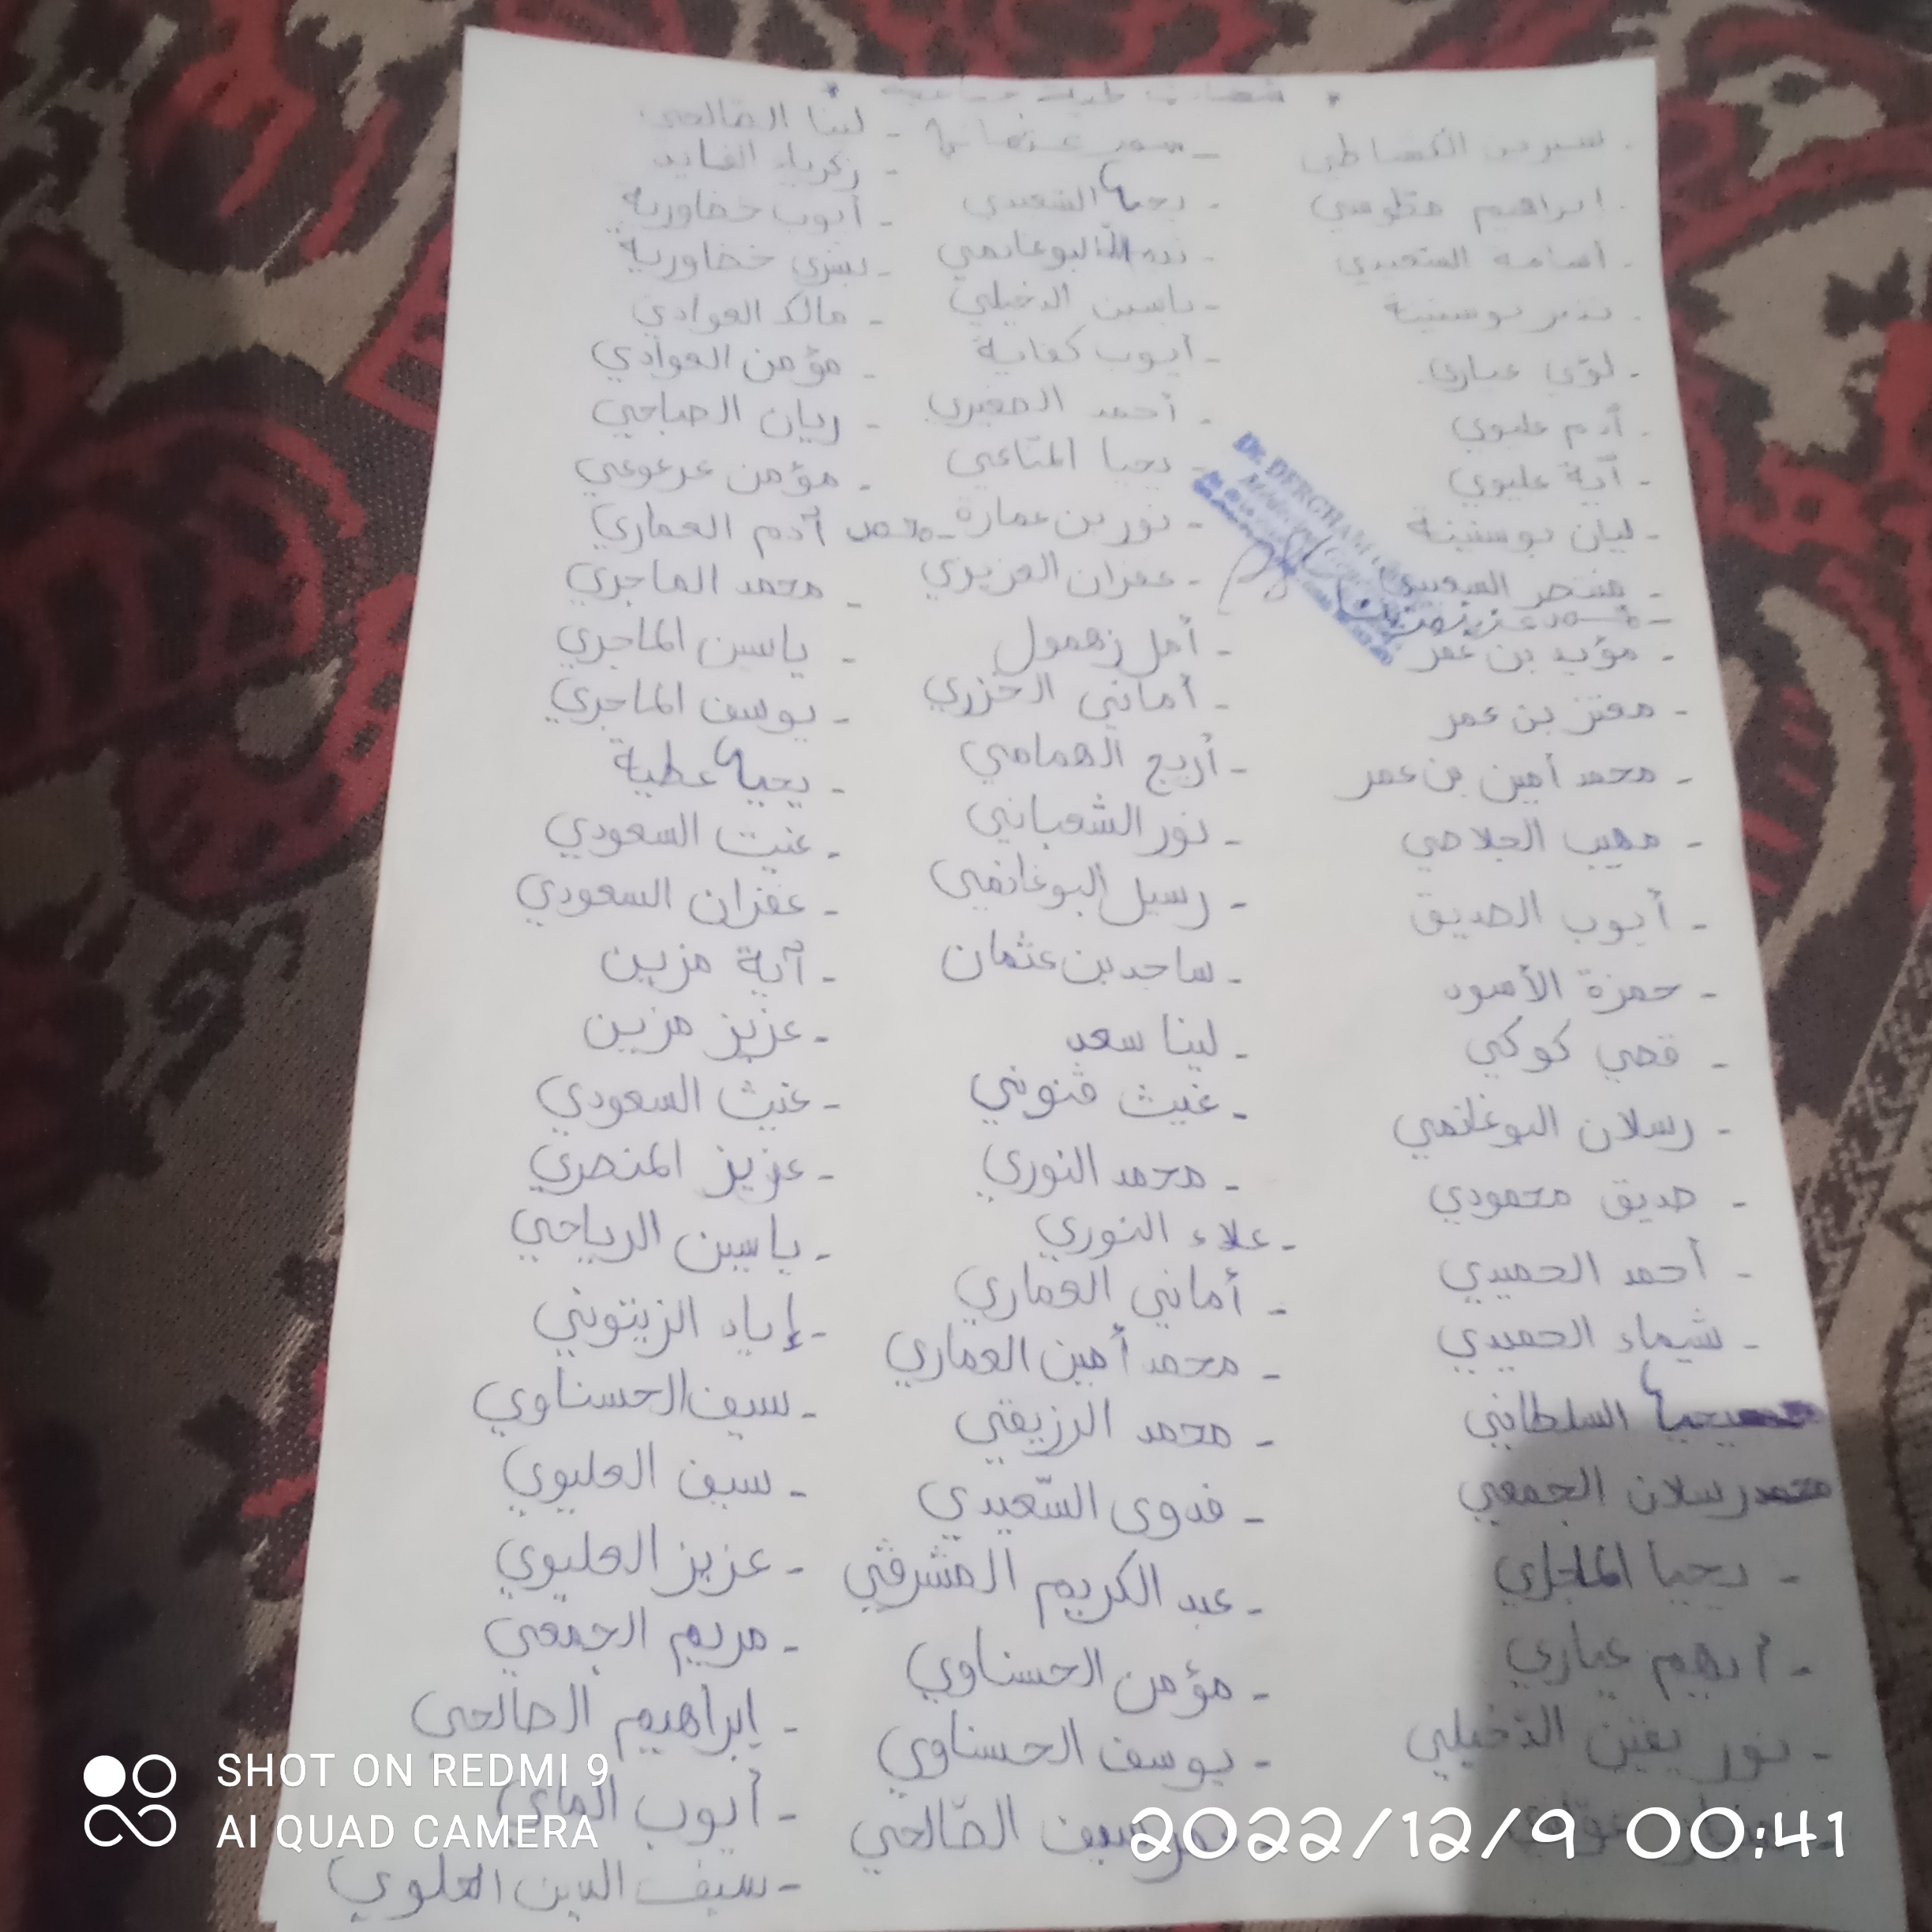 ابراهيم
لؤي عباري
آدم عليوي
آية عليوي
ليان بوستينة
منتصر السعيدي
مؤيد بن عمر
معتز بن عمر
محمد أمين بن عمر
مهيب الجلاصي
أيوب الصديق
حمزة الأسود
قصي كوكي
رسلان البوغانمي
صديق محمودي
أحمد الحميدي
شيماء الحميدي
السلطاني
محمد رسلان الجمعي
يحيا الماجري
أدهم عباري
نور يقين الدخيلي
يحيا السعيدي
البوغانمي
ياسين الدخيلي
أيوب كفاية
أحمد الصغيري
يحيا المناعي
نور بن عمارة
غفران العزيزي
أمل زهمول
أماني الخزري
أريج الهمامي
نور الشعباني
رسيل البوغانمي
ساجد بن عثمان
لينا سعد
غيث قنوني
محمد النوري
علاء النوري
أماني العماري
محمد أمين العماري
محمد الرزيقي
فدوى السّعيدي
عبد الكريم المشرقي
مؤمن الحسناوي
يوسف الحسناوي
سيف الصّالحي
لينا الصّالحي
زكرياء القايد
أيوب خضاورية
يسري خضاورية
مالك العوادي
مؤمن العوادي
ريان الصباحي
مؤمن عرعوعي
محمد آدم العماري
محمد الماجري
ياسين الماجري
يوسف الماجري
يحيا عطية
غيث السعودي
غفران السعودي
آية مزين
عزيز مزين
غيث السعودي
عزيز المنصري
ياسين الرياحي
إياد الزيتوني
سيف الحسناوي
سيف العليوي
عزيز العليوي
مريم الجمعي
إبراهيم الصالحي
أيوب
سيف الدين العلوي
Dr. DERGHAM
SHOT ON REDMI 9
AI QUAD CAMERA
2022/12/9 00:41